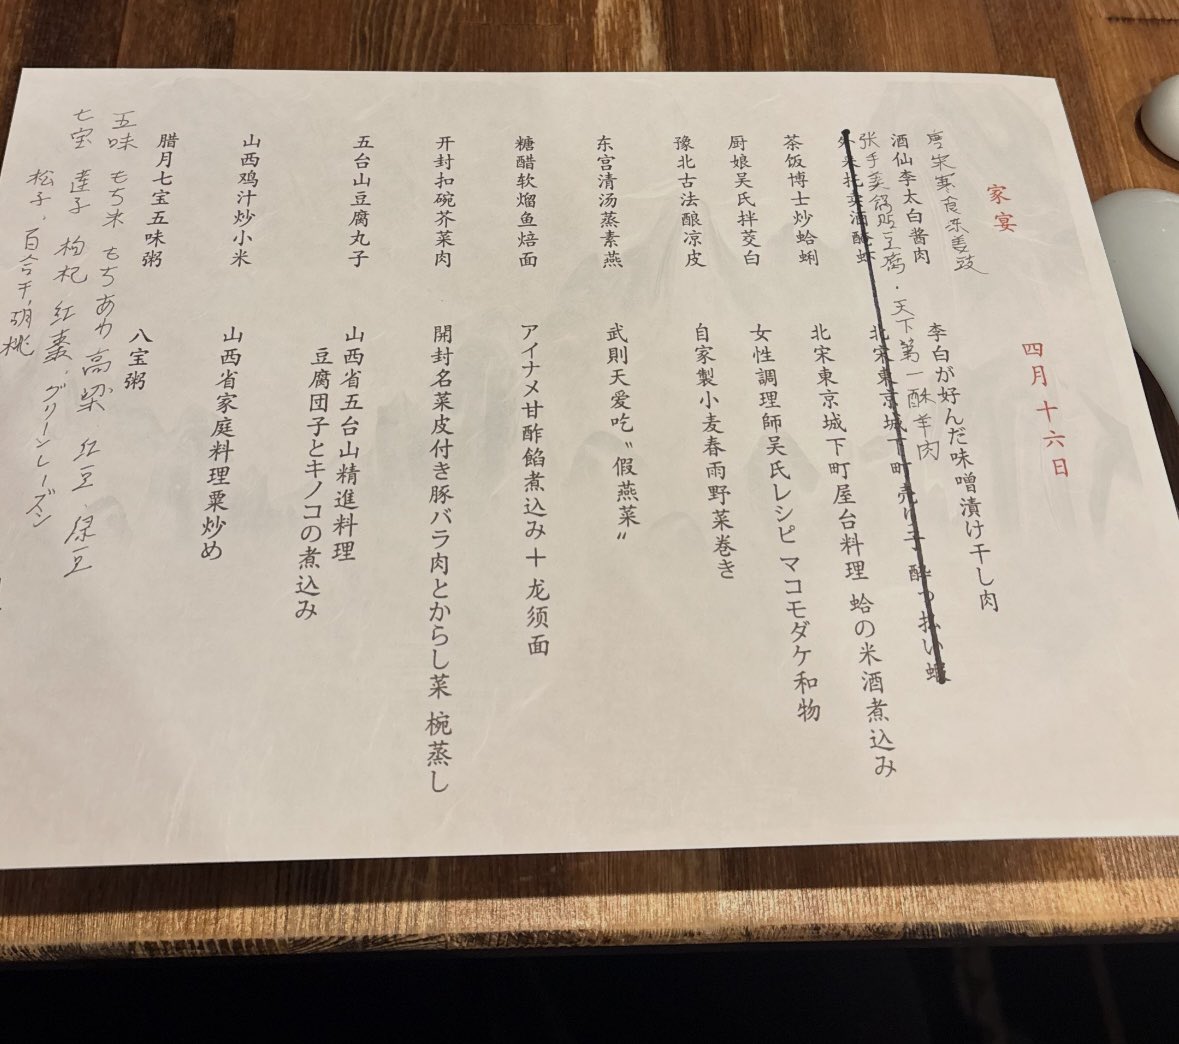 家宴
四月十六日
唐宋寒食东麦豉
酒仙李太白酱肉
李白が好んだ味噌漬け干し肉
张手美锅贴豆腐・天下第一酥羊肉
外来托卖酒醃虾
北宋東京城下町売り子 酔っ払い蝦
茶饭博士炒蛤蜊
北宋東京城下町屋台料理 蛤の米酒煮込み
厨娘吴氏拌茭白
女性調理師吴氏レシピ マコモダケ和物
豫北古法酿凉皮
自家製小麦春雨野菜巻き
东宫清汤蒸素燕
武則天爱吃〝假燕菜〟
糖醋软熘鱼焙面
アイナメ甘酢餡煮込み＋龙须面
开封扣碗芥菜肉
開封名菜皮付き豚バラ肉とからし菜 椀蒸し
五台山豆腐丸子
山西省五台山精進料理
豆腐団子とキノコの煮込み
山西鸡汁炒小米
山西省家庭料理粟炒め
腊月七宝五味粥
八宝粥
五味 もち米 もちあわ 高梁 红豆 绿豆
七宝 莲子 枸杞 红枣、グリーンレーズン
松子、百合干、胡桃